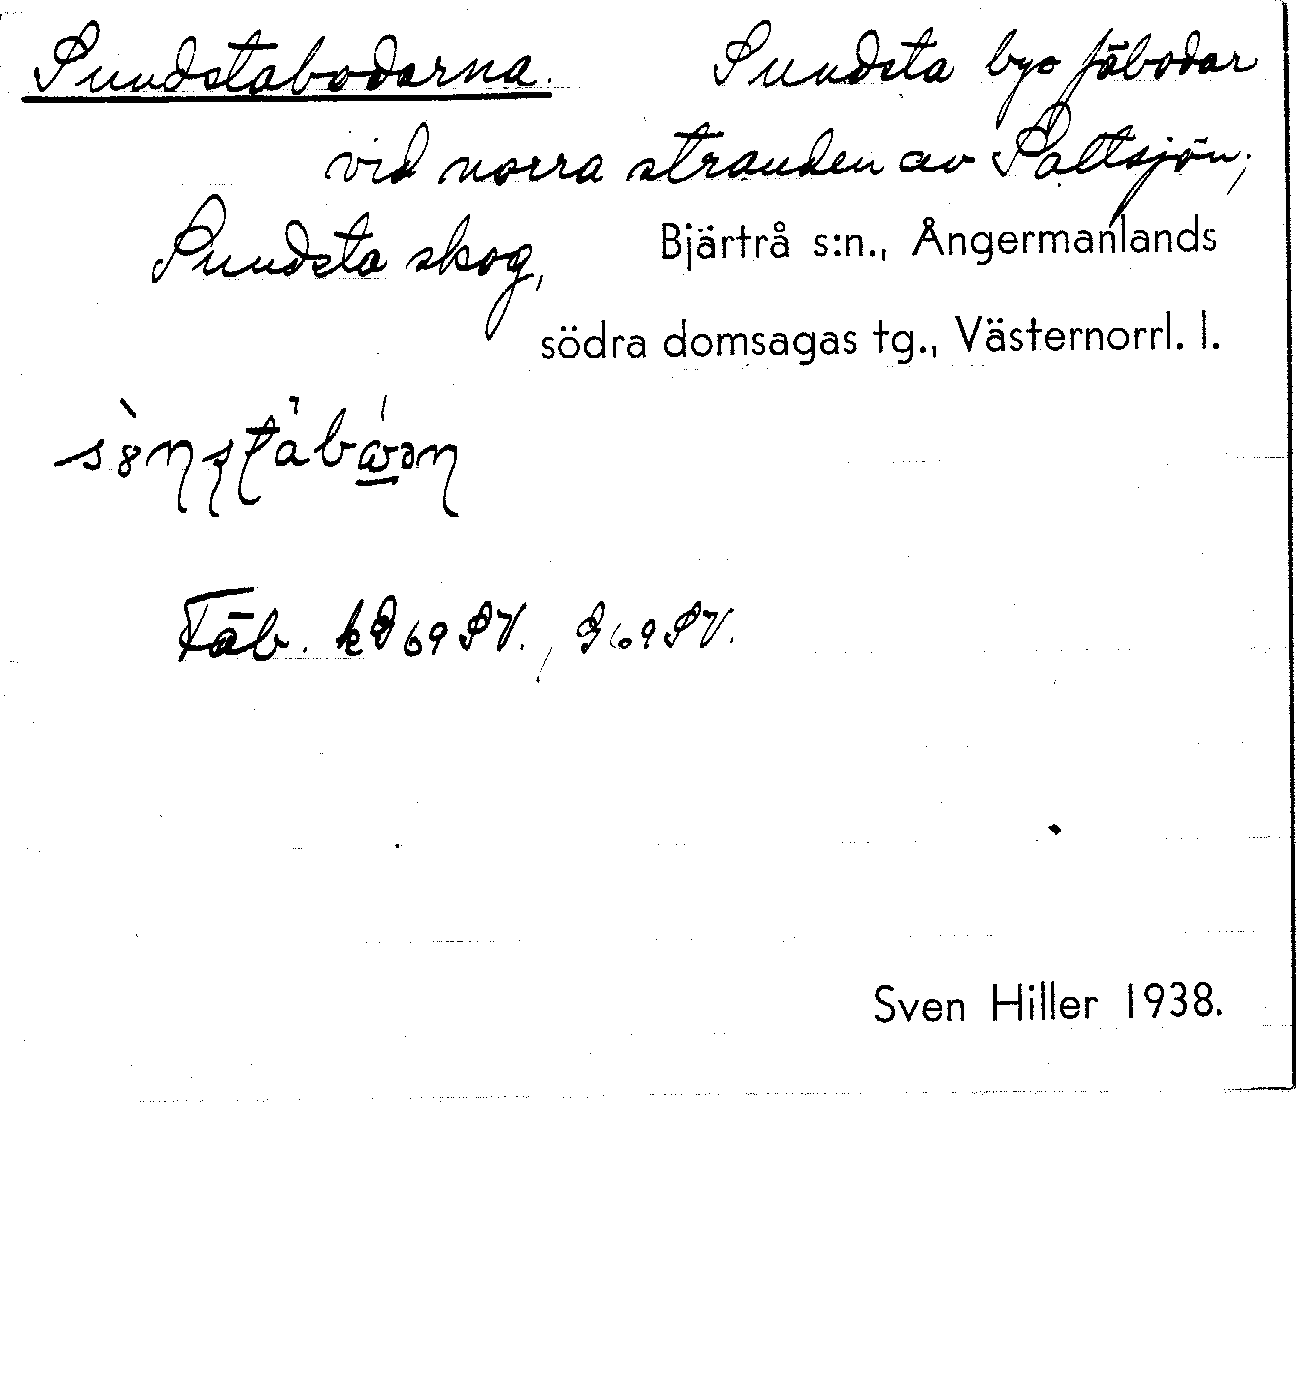 Sundstabodarna. Sundsta bys fäbodar
vid norra stranden av Saltsjön;
Sundsta skog, Bjärtrå s:n., Ångermanlands
södra domsagas tg., Västernorrl. l.
Fäb. 69 SV., 69 SV.
Sven Hiller 1938.